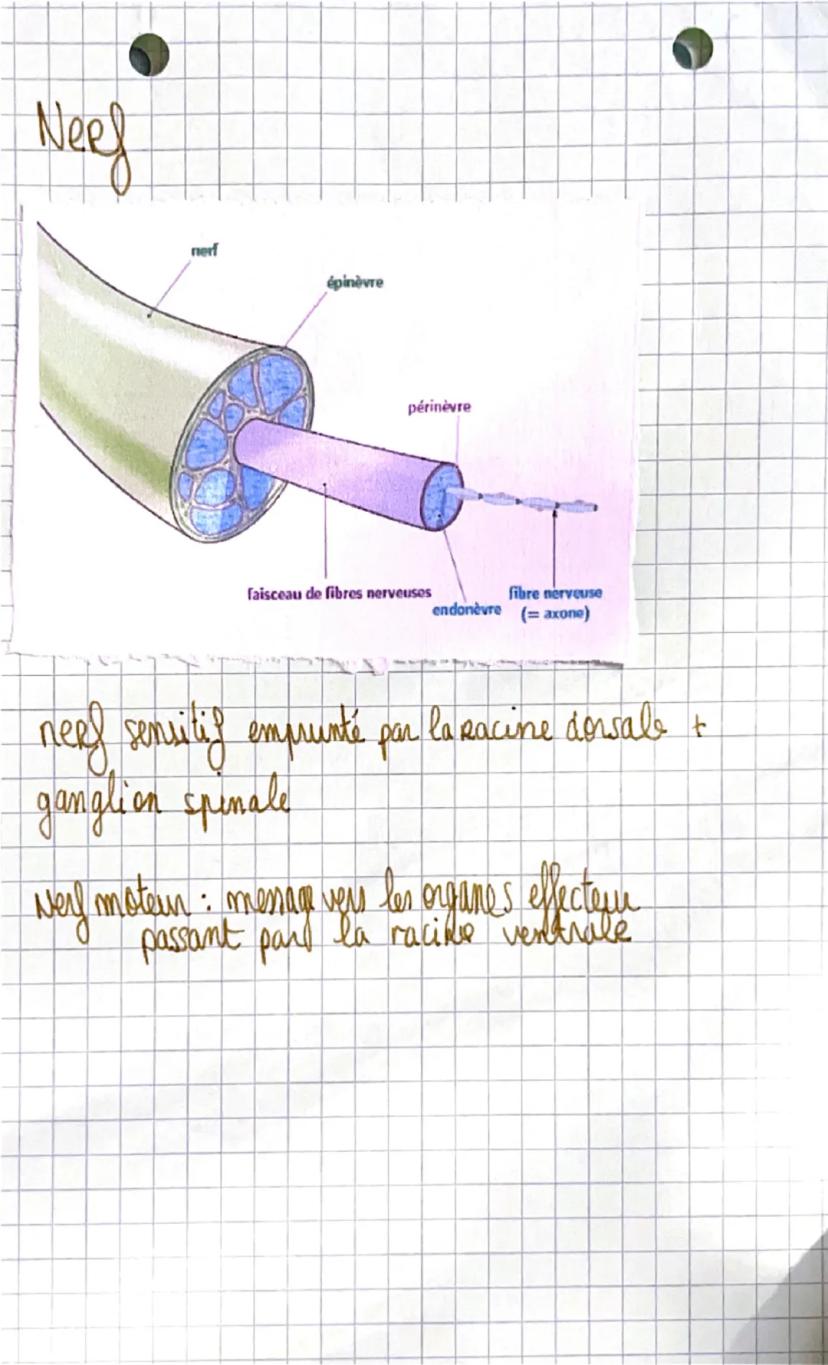 Nerf
nerf
épinèvre
périnèvre
faisceau de fibres nerveuses
endonèvre
fibre nerveuse
(= axone)
nerf sensitif emprunté par la racine dorsale +
ganglion spinale
Nerf moteur : message vers les organes effecteur
passant par la racine ventrale